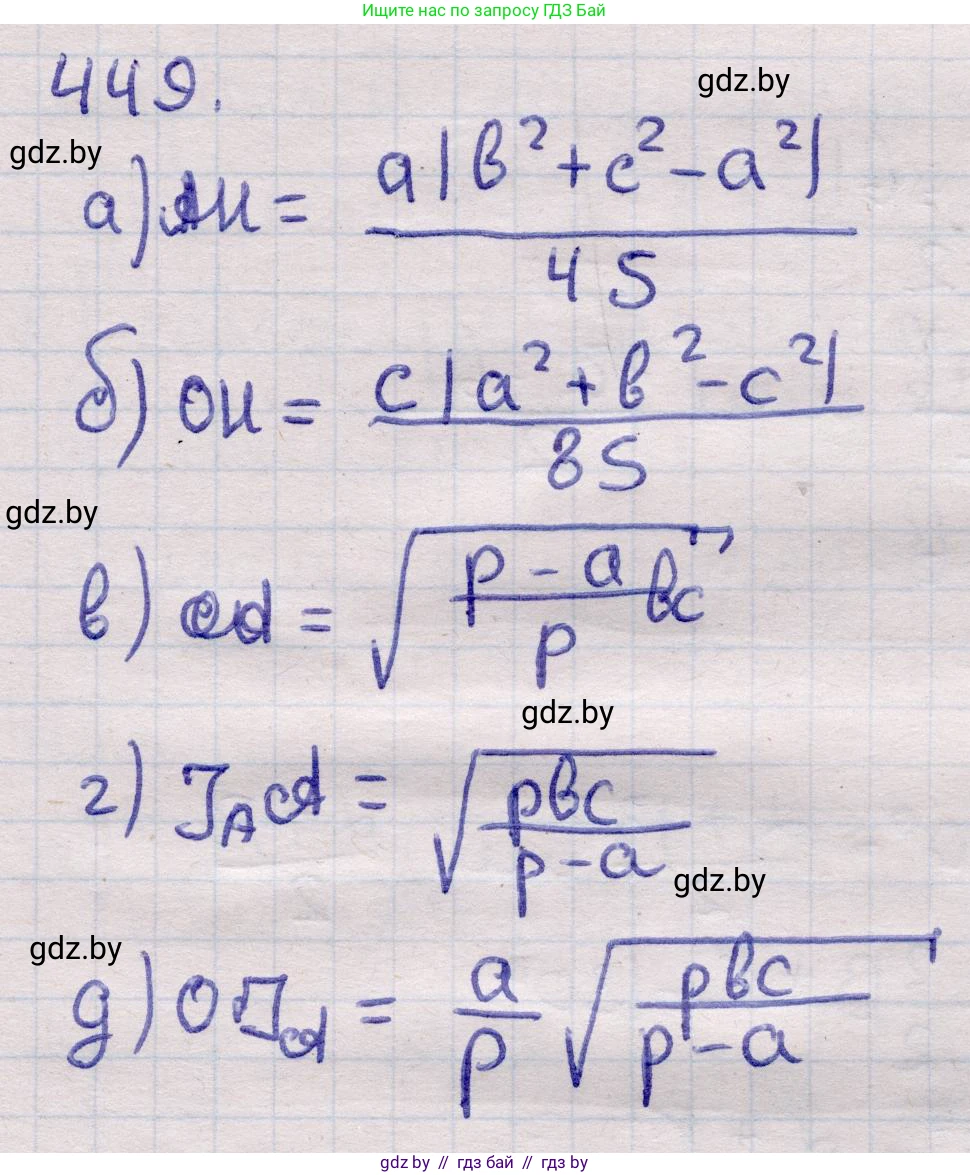 Ищите нас по запросу ГДЗ Бай
449.
gdz.by
gdz.by
а) AH = a|b² + c² - a²| / 4S
б) OH = c|a² + b² - c²| / 8S
gdz.by
в) = √((p - a)/p bc)
gdz.by
г) J_A A = √(pbc / (p - a))
gdz.by
gdz.by
д) OJ_A = a/p √(pbc / (p - a))
gdz.by // гдз бай // гдз by